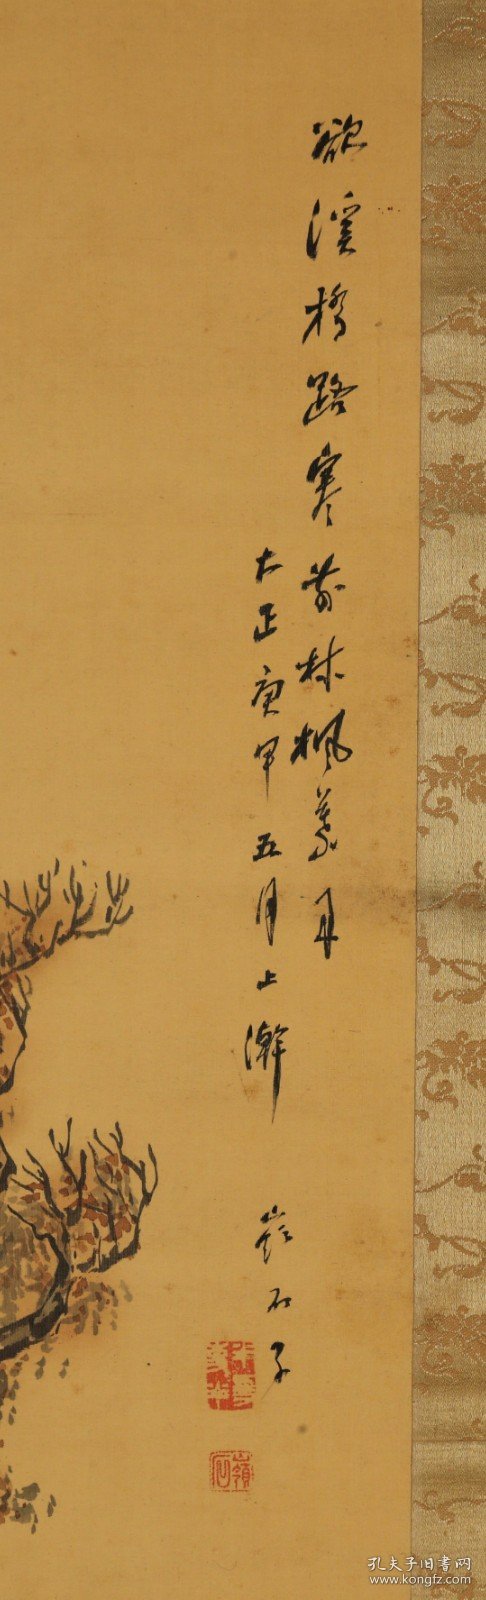 溪橋路寒林楓葉丹
大正庚申五月上澣
嶺石子
嶺石
孔夫子旧書网
www.kongfz.com